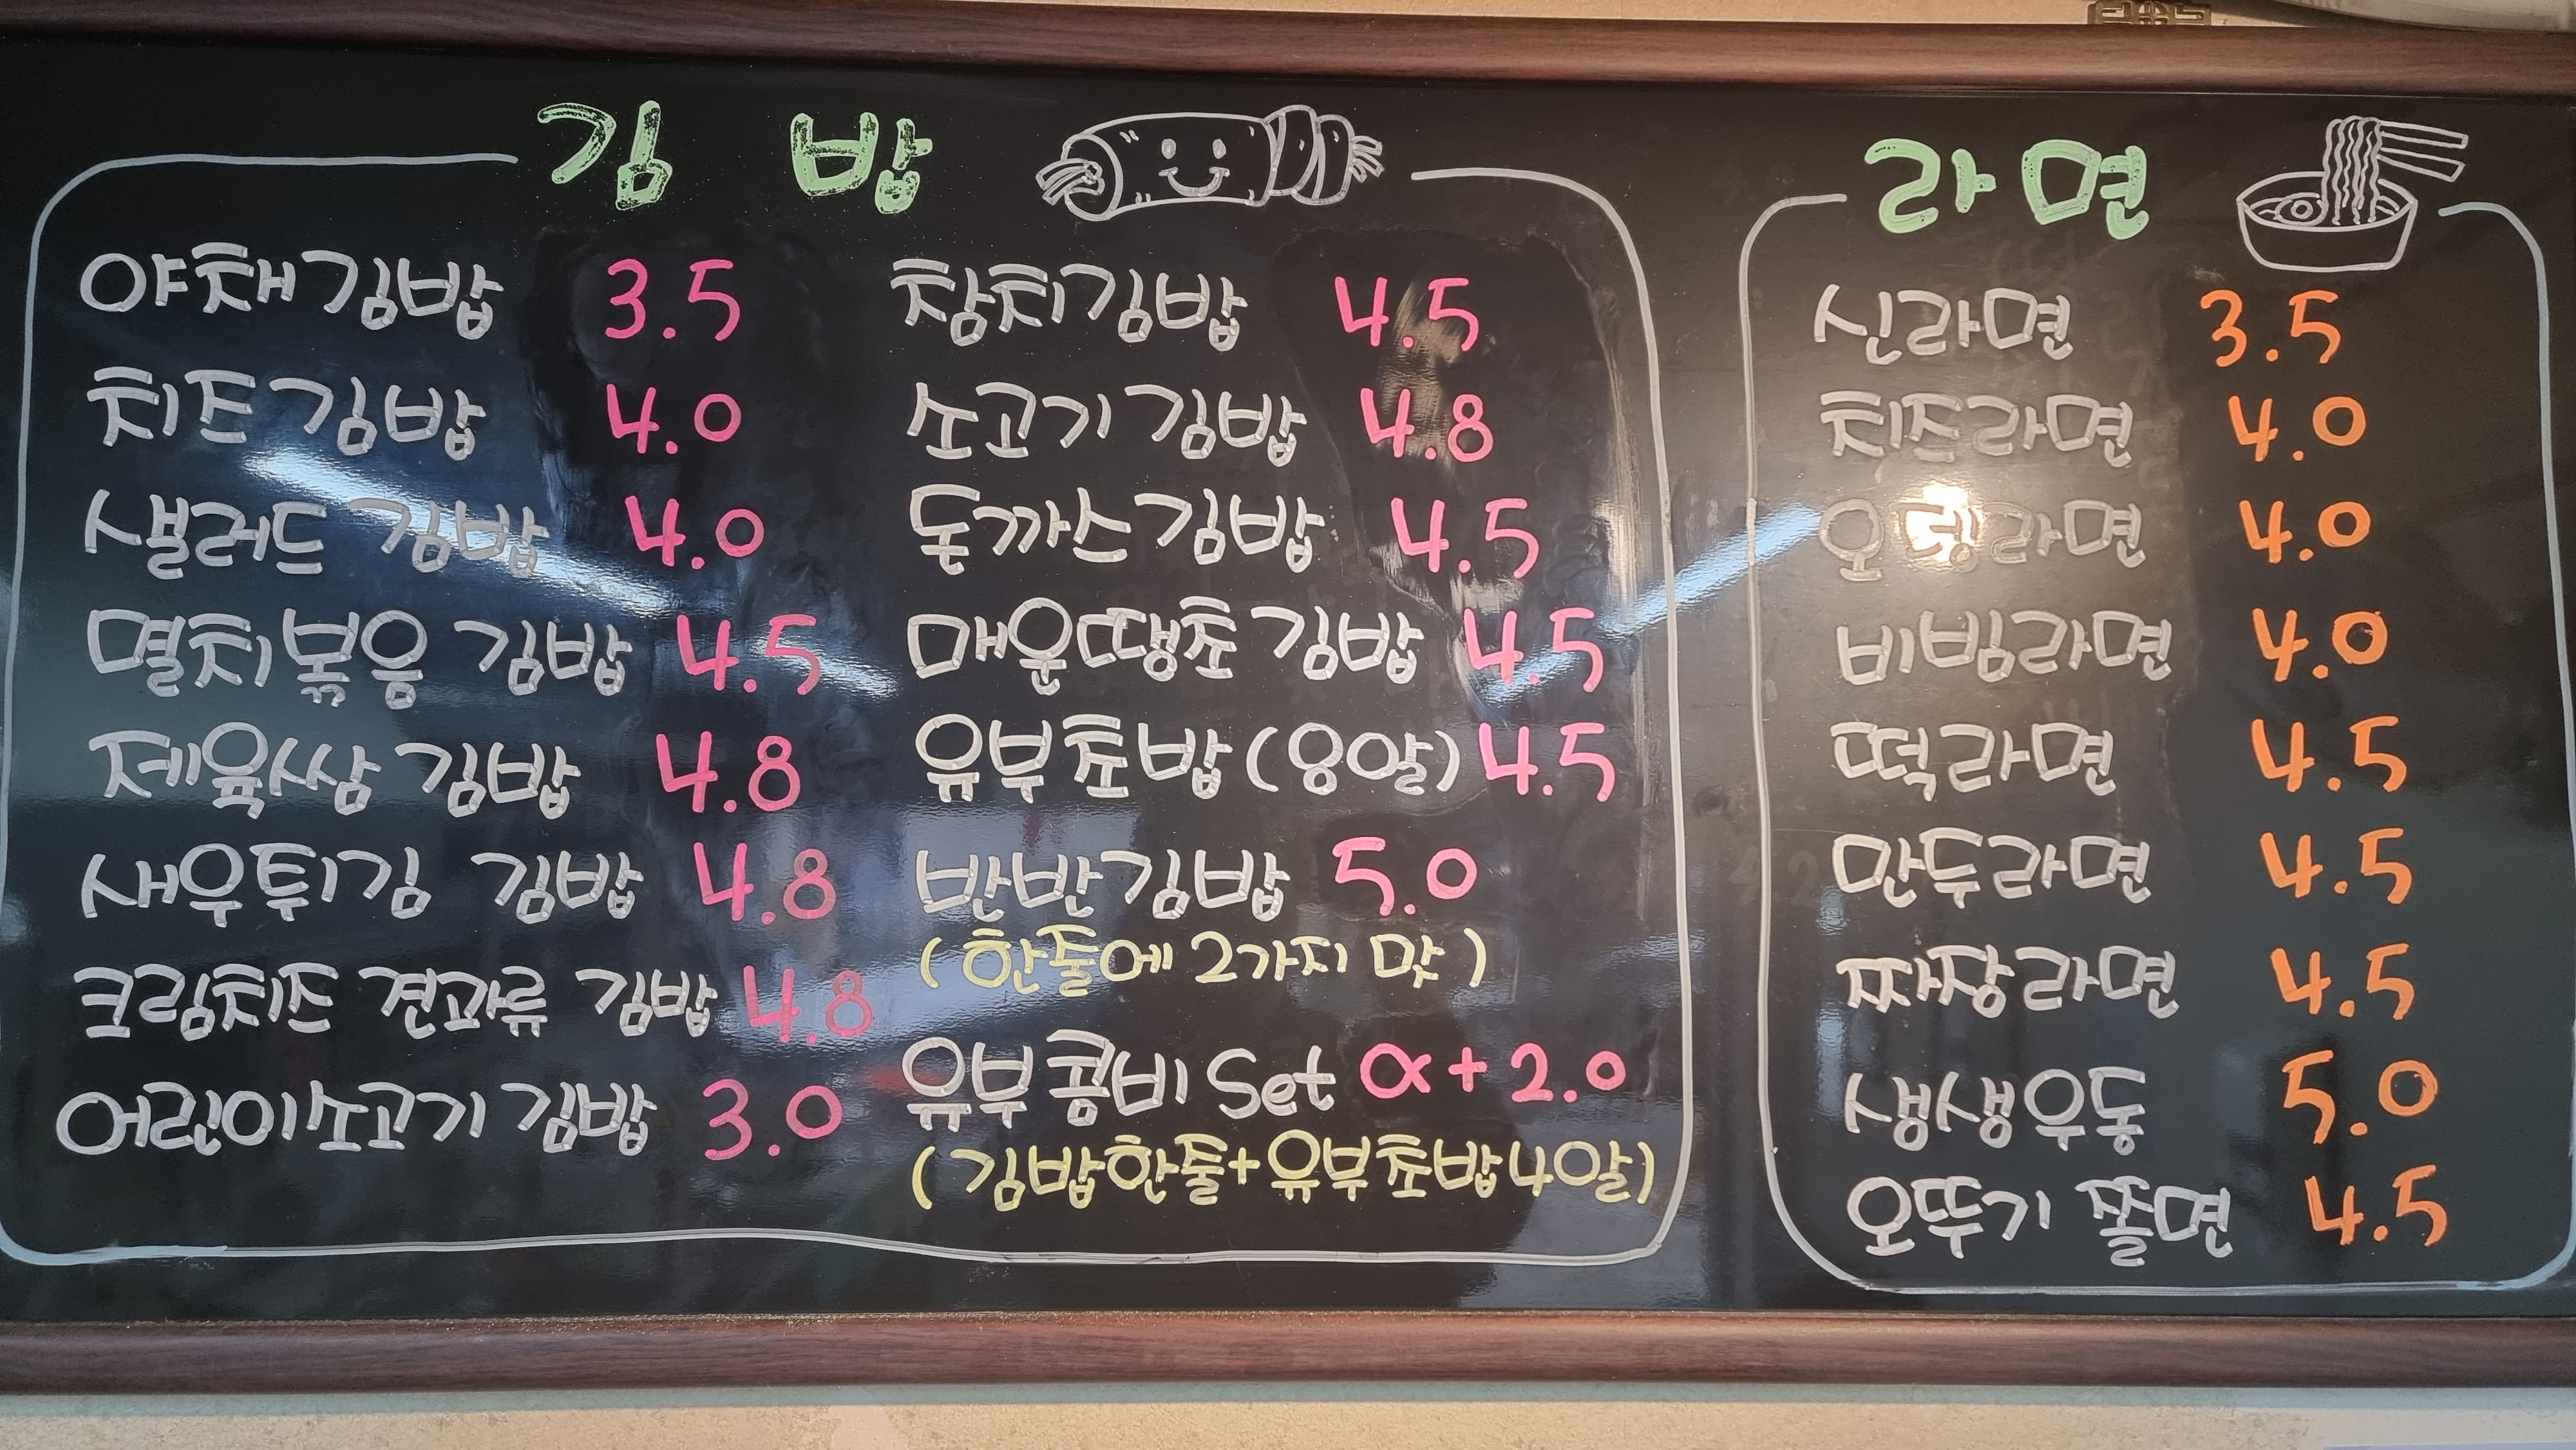 김 밥
야채김밥 3.5
치즈김밥 4.0
샐러드 김밥 4.0
멸치볶음 김밥 4.5
제육쌈 김밥 4.8
새우튀김 김밥 4.8
크림치즈 견과류 김밥 4.8
어린이소고기 김밥 3.0
참치김밥 4.5
소고기김밥 4.8
돈까스김밥 4.5
매운땡초김밥 4.5
유부초밥(8알) 4.5
반반김밥 5.0
(한줄에 2가지 맛)
유부콤비 Set α+2.0
(김밥한줄+유부초밥4알)
라면
신라면 3.5
치즈라면 4.0
오뎅라면 4.0
비빔라면 4.0
떡라면 4.5
만두라면 4.5
짜장라면 4.5
생생우동 5.0
오뚜기 쫄면 4.5